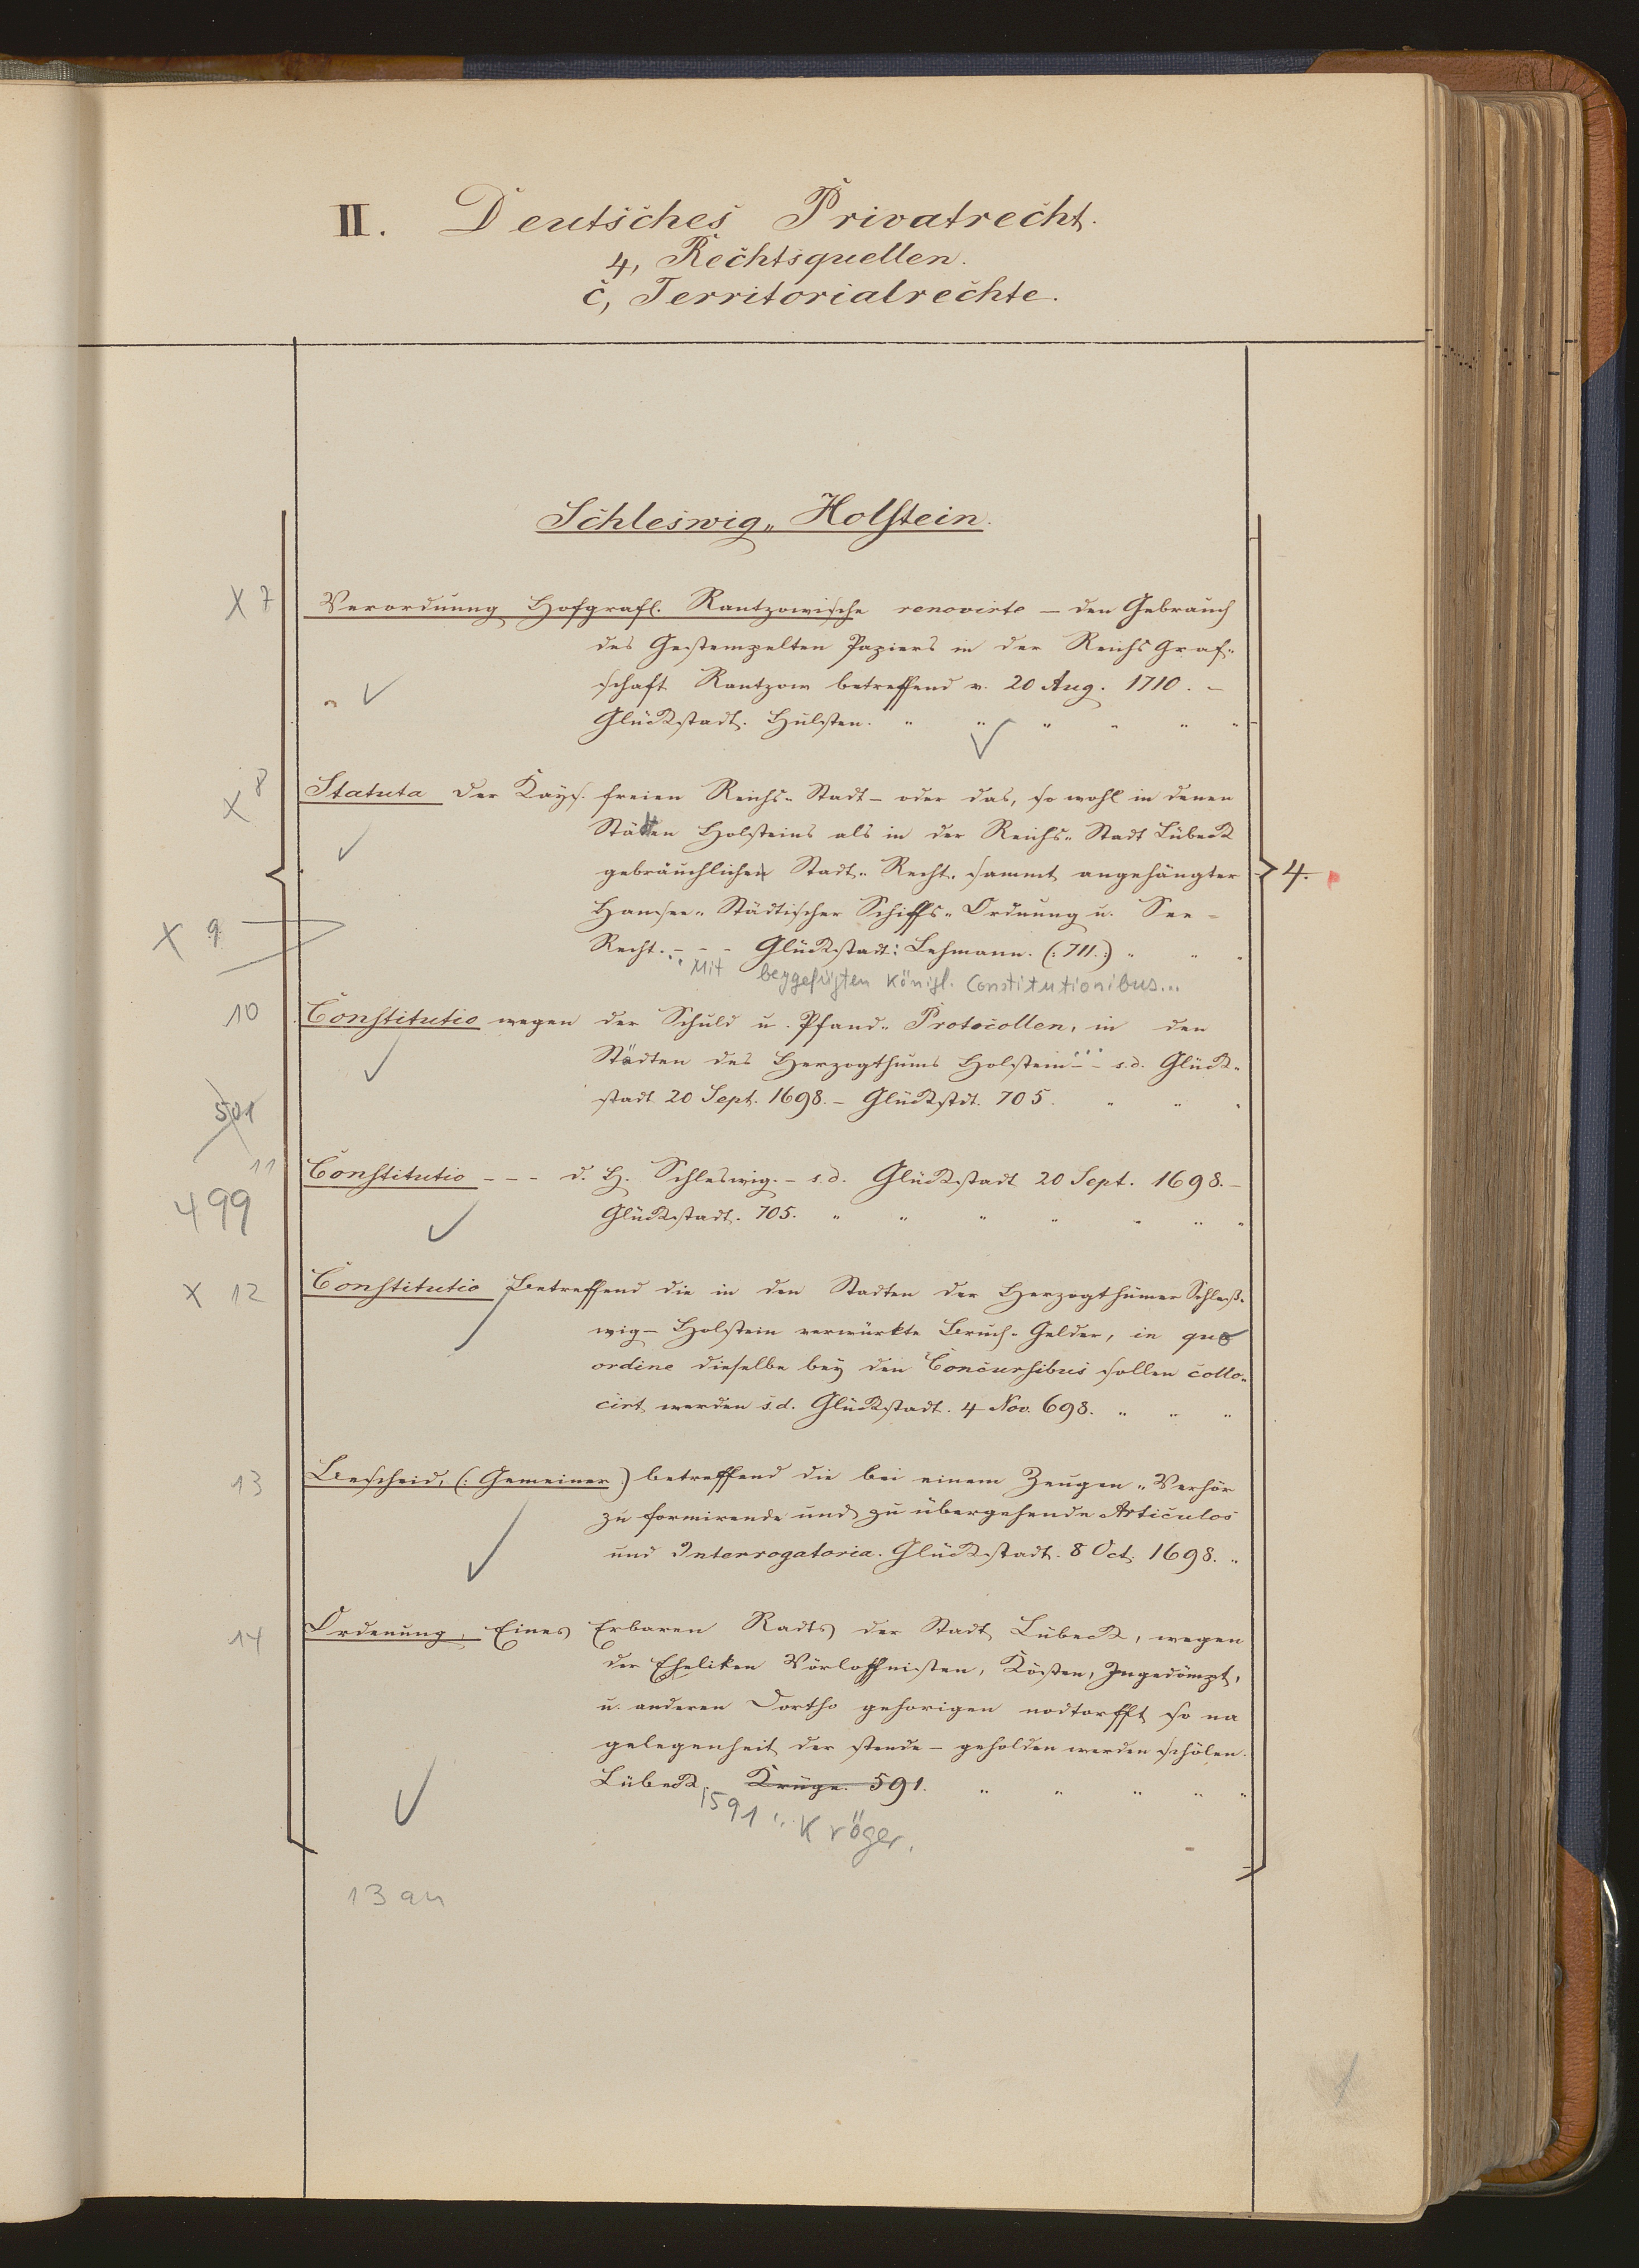 II. Deutsches Privatrecht.
4, Rechtsquellen.
c, Territorialrechte.
Schleswig„ Holstein.
X 7 Verordnung Hofgrafl. Rantzowische renovirte – den Gebrauch
des Gestempelten Papiers in der Reichs Graf„
schaft Rantzow betreffend v. 20 Aug. 1710. –
Glückstadt. Hülsten. „ „ „ „ „ „
X 8 Statuta der Kays. freien Reichs„ Stadt – oder das, so wohl in denen
Städten Holsteins als in der Reichs„ Stadt Lübeck
gebräuchlichen Stadt„ Recht. sammt angehängter 4.
X 9 Hansee„ Städtischer Schiffs„ Ordnung u. See –
Recht. – – – Glückstadt: Lehmann. (: 711.:) „ „ „
Mit beygefügten Königl. Constitutionibus...
10 Constitutio wegen der Schuld u. Pfand„ Protocollen, in den
Städten des Herzogthums Holstein... – s.d. Glück„
501 stadt 20 Sept. 1698. – Glückstdt. 705. „ „ „
11 Constitutio – – – d. H. Schleswig. – s.d. Glückstadt 20 Sept. 1698. –
499 Glückstadt. 705. „ „ „ „ „ „ „
X 12 Constitutio Betreffend die in den Stadten der Herzogthümer Schleß„
wig – Holstein verwürkte Bruch„ Gelder, in quo
ordine dieselbe bey den Concursibus sollen collo„
cirt werden s.d. Glückstadt. 4 Nov. 698. „ „ „
13 Bescheid, (: Gemeiner :) betreffend die bei einem Zeugen „ Verhör
zu formirende und zu übergehende Articulos
und Interrogatoria. Glückstadt. 8 Oct. 1698. „
14 Ordenung, Eines Erbaren Radts der Stadt Lübeck, wegen
der Eheliken Vörloffnissen, Kösten, Ingedömpt,
u. anderen Dortho gehorigen nodtorfft so na
gelegenheit der stende – geholden werden schölen.
Lübeck. Krüge. 591. „ „ „ „ „
1591: Kröger.
13 an